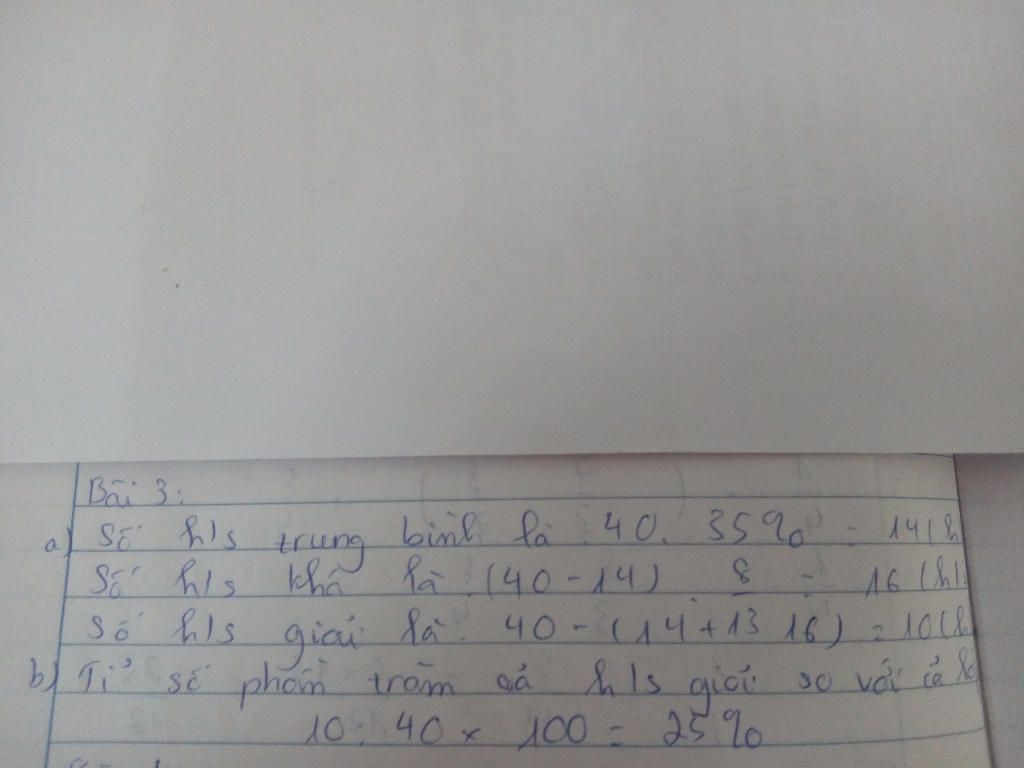 Bài 3:
a) Số h/s trung bình là: 40. 35% = 14(h
Số h/s khá là: (40-14) . 8 = 16 (h/s
Số h/s giỏi là: 40 - (14 + 13 16) = 10(h
b) Tỉ số phần trăm củả h/s giỏi so với cả
10: 40 x 100 = 25%